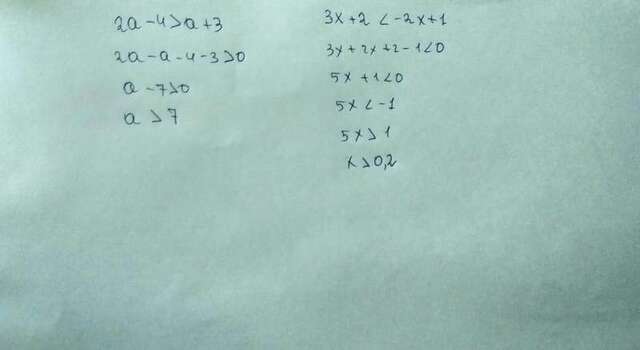 2a - 4 > a + 3
2a - a - 4 - 3 > 0
a - 7 > 0
a > 7
3x + 2 < -2x + 1
3x + 2x + 2 - 1 < 0
5x + 1 < 0
5x < -1
5x > 1
x > 0,2